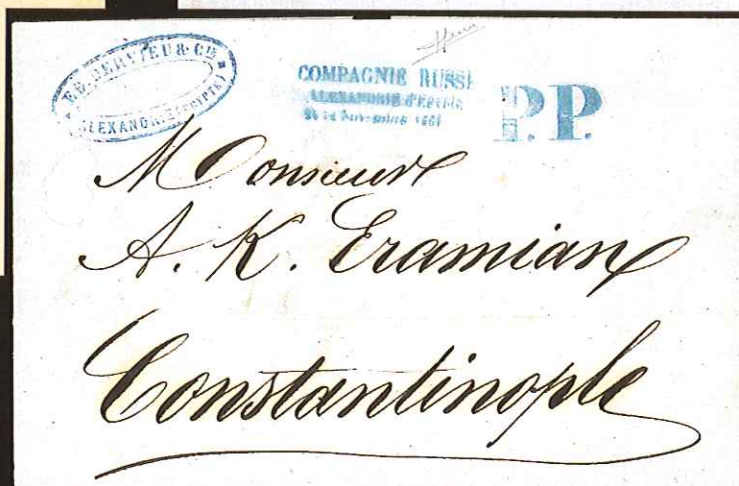 DERVIEU & Cie
ALEXANDRIE (EGYPTE)
COMPAGNIE RUSSE
ALEXANDRIE d'EGYPTE
Novembre 1861
P.P.
Monsieur
A. K. Eramian
Constantinople